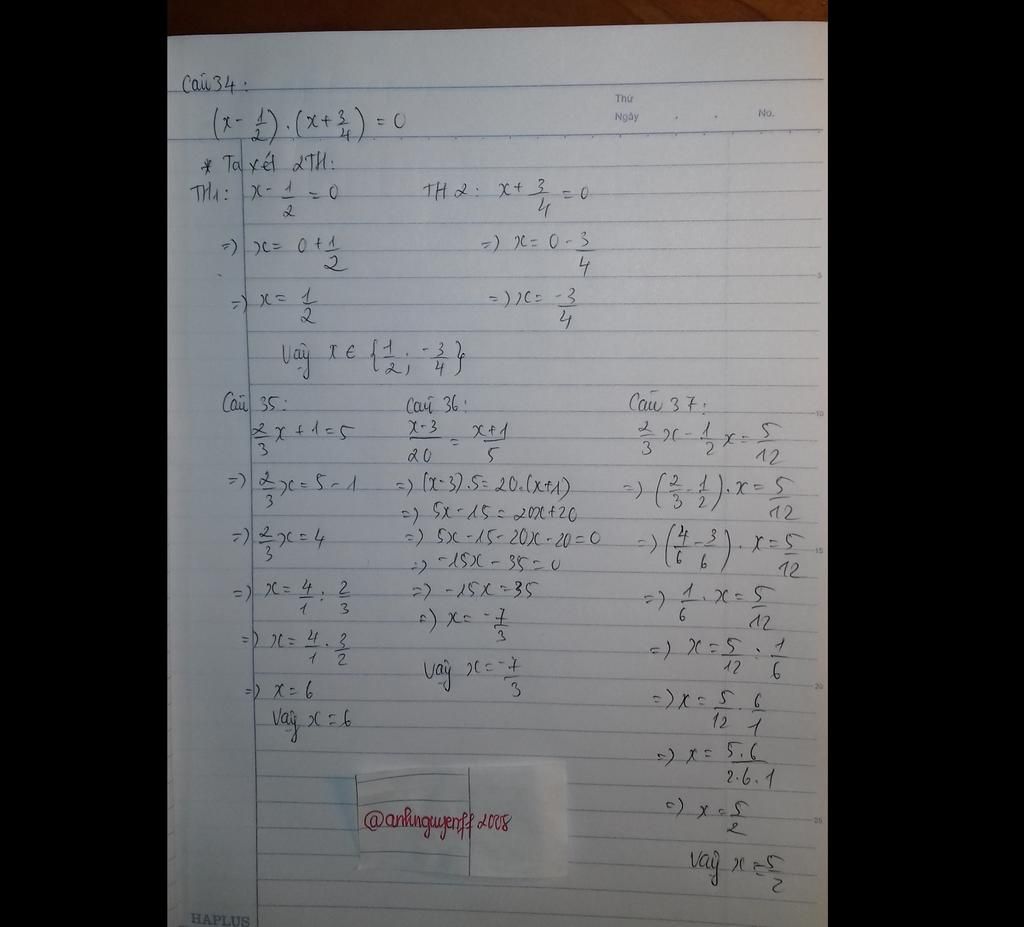 Câu 34:
Thứ
Ngày . . No.
(x - 1/2) . (x + 3/4) = 0
* Ta xét 2TH:
TH1: x - 1/2 = 0 TH2: x + 3/4 = 0
=) x = 0 + 1/2 =) x = 0 - 3/4
=) x = 1/2 =) x = -3/4
Vậy x ∈ {1/2; -3/4}
Câu 35:
2/3 x + 1 = 5
=) 2/3 x = 5 - 1
=) 2/3 x = 4
=) x = 4/1 : 2/3
=) x = 4/1 . 3/2
=) x = 6
Vậy x = 6
Câu 36:
x-3/20 = x+1/5
=) (x-3).5 = 20.(x+1)
=) 5x - 15 = 20x + 20
=) 5x - 15 - 20x - 20 = 0
=) -15x - 35 = 0
=) -15x = 35
=) x = -7/3
Vậy x = -7/3
Câu 37:
2/3 x - 1/2 x = 5/12
=) (2/3 - 1/2) . x = 5/12
=) (4/6 - 3/6) . x = 5/12
=) 1/6 . x = 5/12
=) x = 5/12 : 1/6
=) x = 5/12 . 6/1
=) x = 5.6/2.6.1
=) x = 5/2
Vậy x = 5/2
5
10
15
20
25
@anhnguyenff2008
HAPLUS